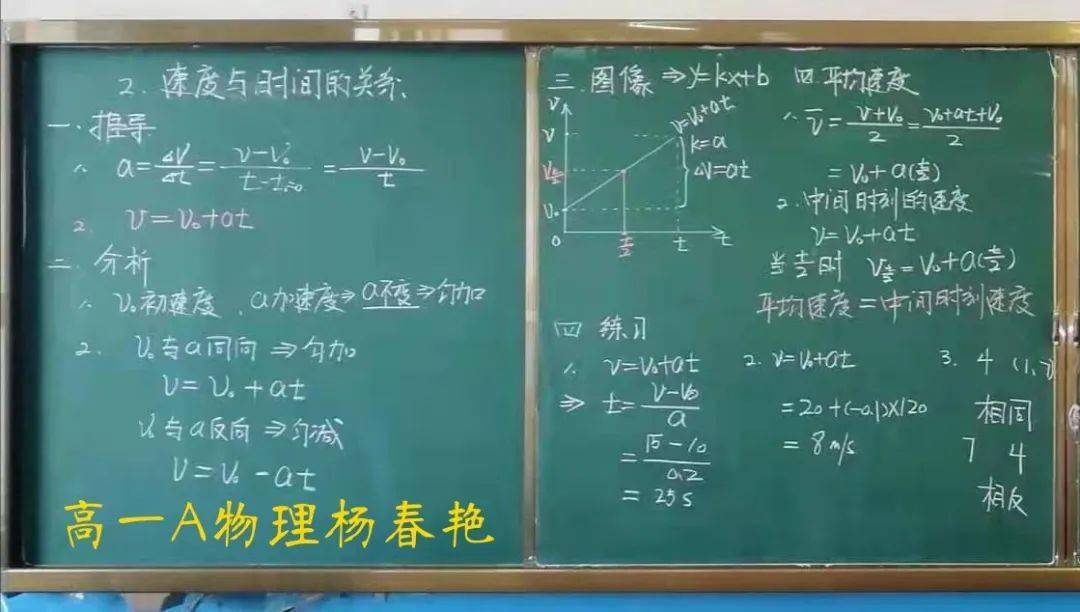 2. 速度与时间的关系
一. 推导
1. a=ΔV/Δt=(v-v₀)/(t-t₀=0)=(v-v₀)/t
2. v=v₀+at
二. 分析
1. v₀初速度, a加速度⇒a不变⇒匀加
2. v₀与a同向⇒匀加
v=v₀+at
v₀与a反向⇒匀减
v=v₀-at
三. 图像⇒y=kx+b
v
v
v_{t/2}
v₀
0
t/2
t
t
v=v₀+at
k=a
Δv=at
四 平均速度
1. v̄=(v+v₀)/2=(v₀+at+v₀)/2
=v₀+a(t/2)
2. 中间时刻的速度
v=v₀+at
当t/2时 v_{t/2}=v₀+a(t/2)
平均速度=中间时刻速度
四 练习
1. v=v₀+at
⇒ t=(v-v₀)/a
=(15-10)/0.2
=25s
2. v=v₀+at
=20+(-0.1)×120
=8m/s
3. 4
相同
7 4
相反
高一A物理杨春艳